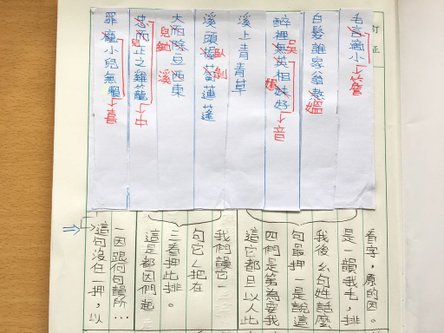 訂正
毛言簷小
白髮誰家翁媼
醉裡無英相妹好
吳
媚
音
溪上青青草
溪頭蓮蓬
臥剝
大而除旦西東
兒鋤
溪
正之雞籠
中
小兒無賴
喜
看字,原的因。
是一韻我七,排
我後么句姓話麼
句最押一是說這
四們是第為要我
這它都旦以人此
我們讀它一
句它么把在
三看押比排。
這是都因們起
一因跟何句讀所…
這句沒在一押,以